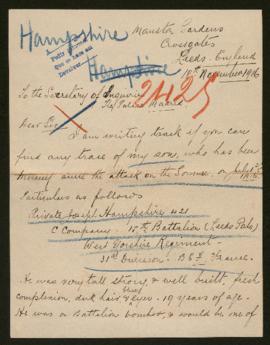 Hampshire
Manston Gardens
Crossgates
Leeds. England
10th November 1916
Hampshire
21425
To the Secretary of Inquiry
The Palace Madrid
Dear Sir
I am writing to ask if you can
find any trace of my son, who has been
missing since the attack on the Somme on July 1st
Particulars as follows
Private Joseph Hampshire 421
C Company. 15th Battalion (Leeds Pals)
West Yorkshire Regiment
31st Division B.E.F. France.
He was very tall strong, & well built, fresh
complexion, dark hair & eyes. 19 years of age.
He was a Battalion bomber, & would be one of